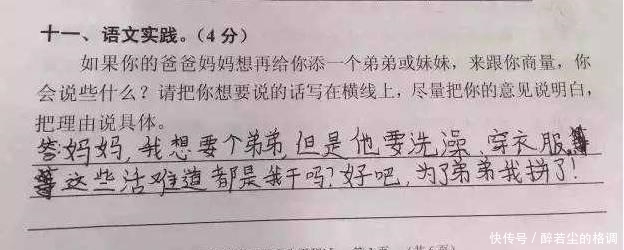 十一、语文实践。（4分）
如果你的爸爸妈妈想再给你添一个弟弟或妹妹，来跟你商量，你
会说些什么？请把你想要说的话写在横线上，尽量把你的意见说明白，
把理由说具体。
答妈妈，我想要个弟弟，但是他要洗澡、穿衣服，等
等这些活难道都是我干吗？好吧，为了弟弟我拼了！
快传号／醉若尘的格调